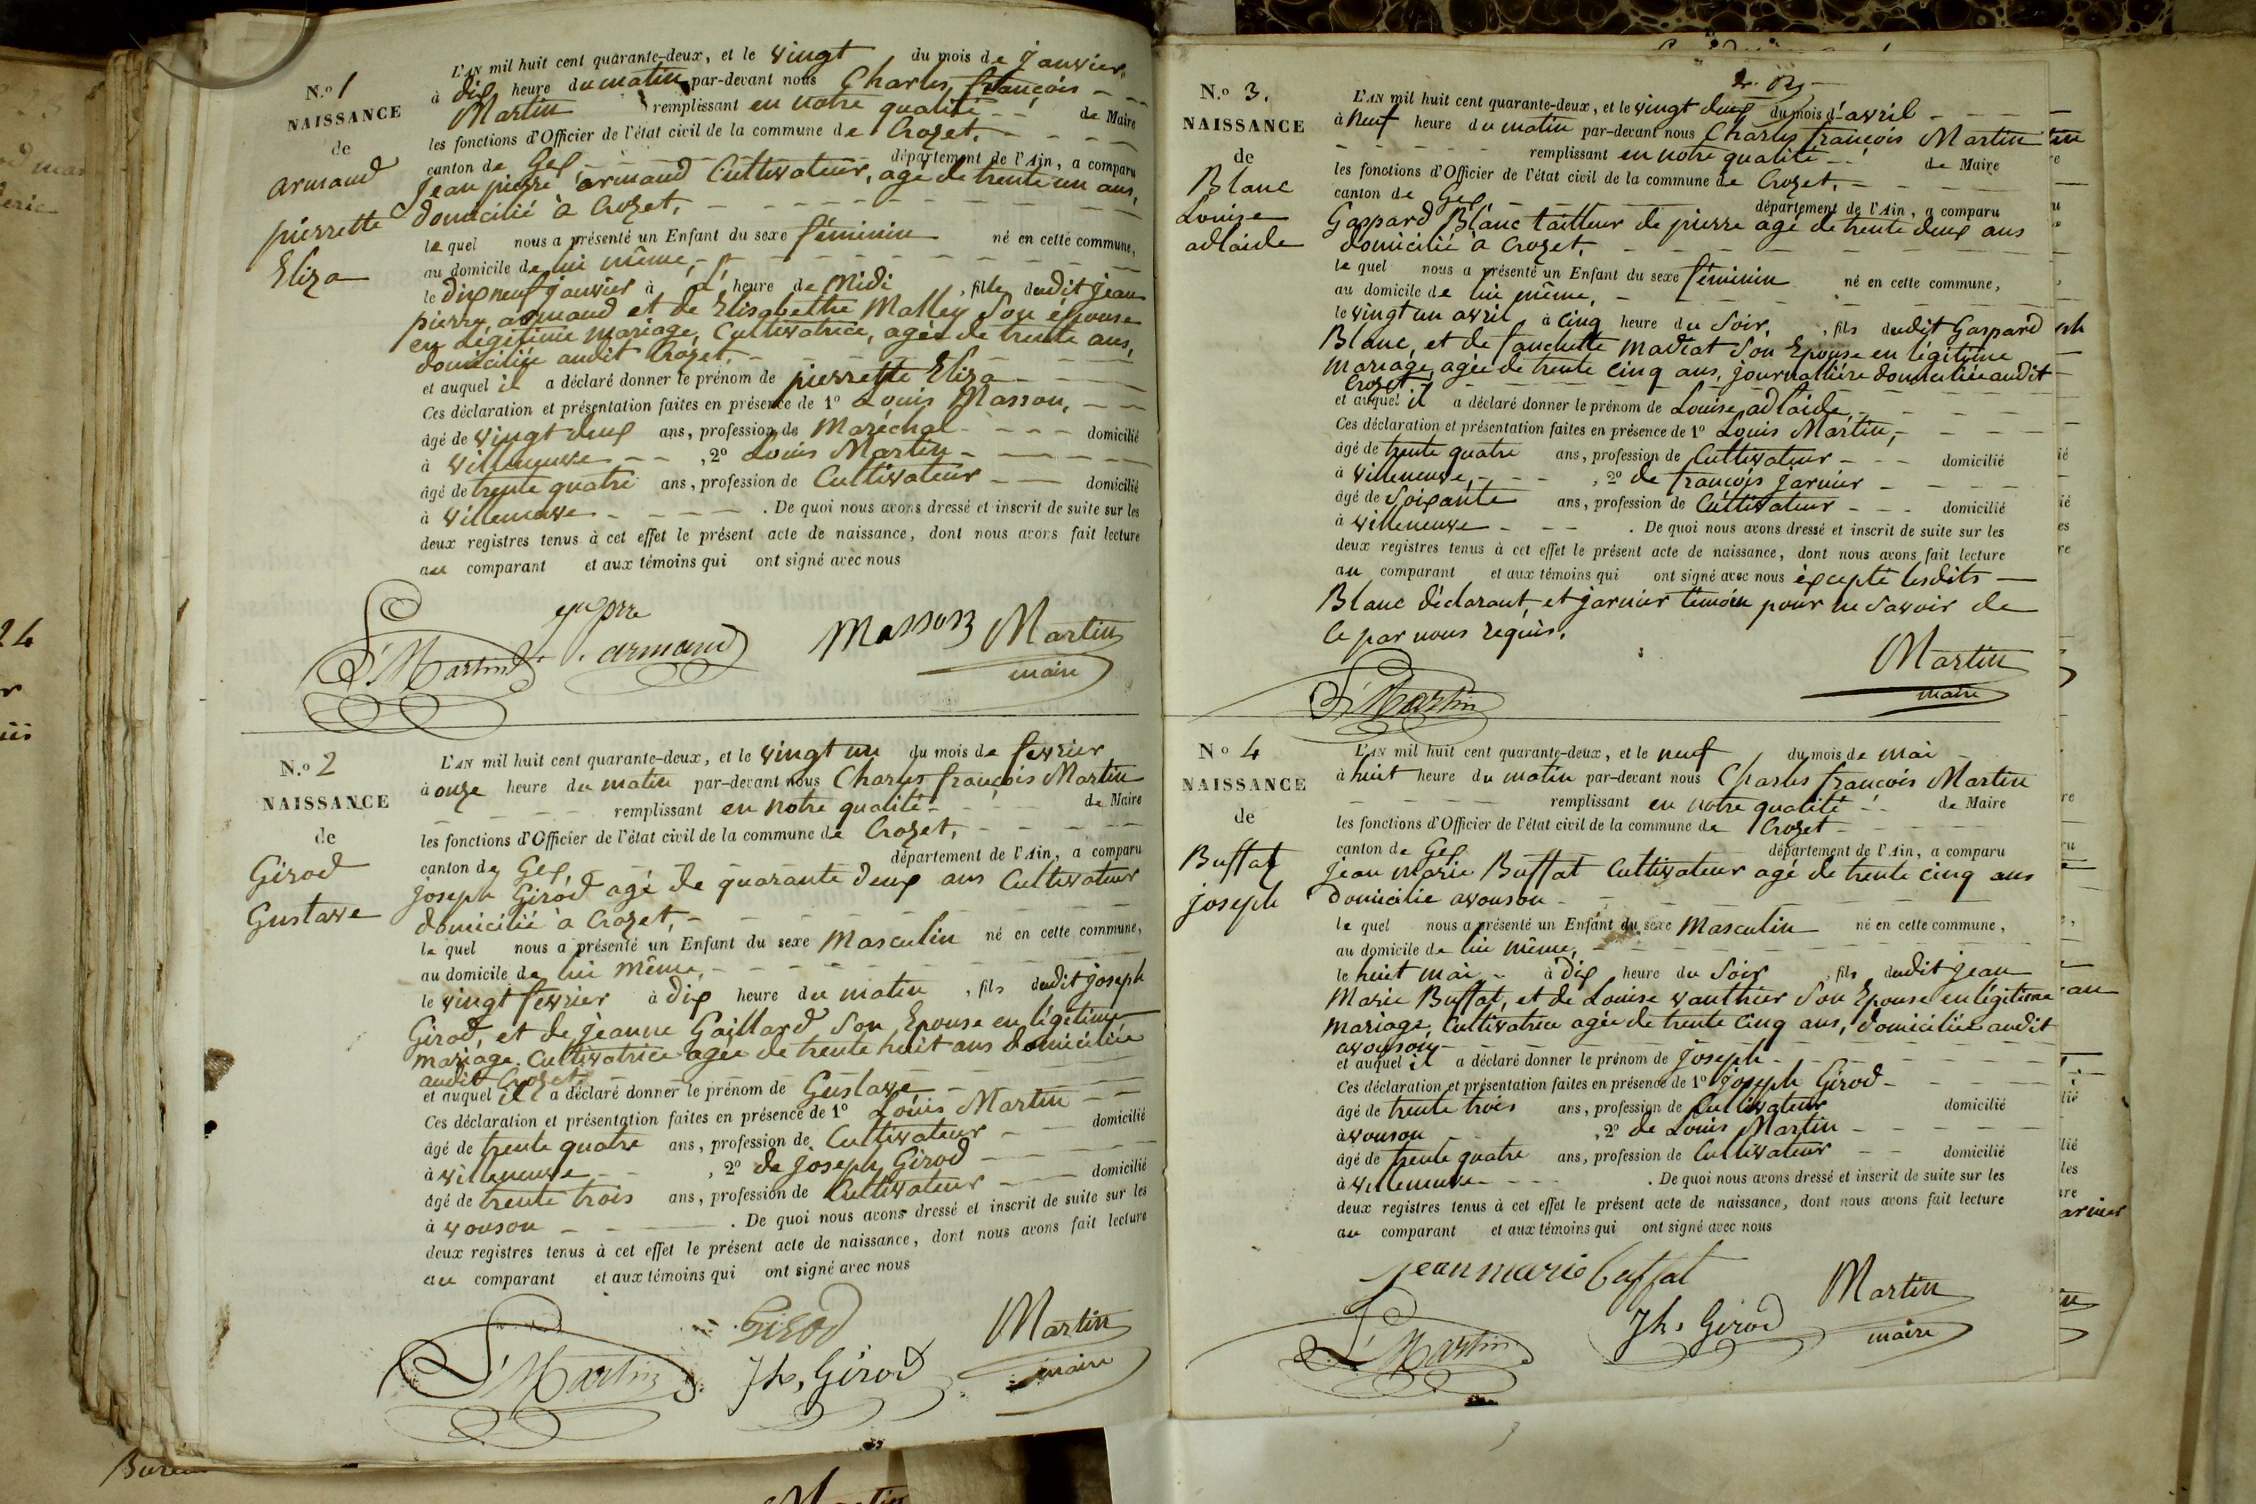 N.o 1
NAISSANCE
de
armand
pierrette
Eliza
L'AN mil huit cent quarante-deux, et le vingt du mois de janvier,
à dix heure du matin par-devant nous Charles françois
Martin remplissant en notre qualité de Maire
les fonctions d'Officier de l'état civil de la commune de Crozet,
canton de Gex, département de l'Ain, a comparu
Jean pierre armand Cultivateur, agé de trente un ans,
domicilié à Crozet,
lequel nous a présenté un Enfant du sexe féminin né en cette commune,
au domicile de lui même,
le dix neuf janvier à heure de Midi , fille dudit jean
pierre armand et de Elisabethe Malley Son épouse
en légitime mariage, Cultivatrice, agée de trente ans,
domiciliée audit Crozet,
et auquel il a déclaré donner le prénom de pierrette Eliza
Ces déclaration et présentation faites en présence de 1o Louis Masson,
âgé de vingt deux ans, profession de Maréchal domicilié
à villeneuve , 2o Louis Martin
âgé de trente quatre ans, profession de Cultivateur domicilié
à villeneuve . De quoi nous avons dressé et inscrit de suite sur les
deux registres tenus à cet effet le présent acte de naissance, dont nous avons fait lecture
au comparant et aux témoins qui ont signé avec nous
Ls Martin armand Masson Martin
maire
N.o 2
NAISSANCE
de
Girod
Gustave
L'AN mil huit cent quarante-deux, et le vingt un du mois de fevrier
à onze heure du matin par-devant nous Charles françois Martin
remplissant en notre qualité de Maire
les fonctions d'Officier de l'état civil de la commune de Crozet,
canton de Gex, département de l'Ain, a comparu
joseph Girod agé de quarante deux ans Cultivateur
domicilié à Crozet,
lequel nous a présenté un Enfant du sexe Masculin né en cette commune,
au domicile de lui même,
le vingt fevrier à dix heure du matin , fils dudit joseph
Girod, et de jeanne Gaillard Son Epouse en légitime
mariage Cultivatrice agée de trente huit ans domiciliée
audit Crozet
et auquel il a déclaré donner le prénom de Gustave
Ces déclaration et présentation faites en présence de 1o Louis Martin
âgé de trente quatre ans, profession de Cultivateur domicilié
à villeneuve , 2o de joseph Girod
âgé de trente trois ans, profession de Cultivateur domicilié
à vouson . De quoi nous avons dressé et inscrit de suite sur les
deux registres tenus à cet effet le présent acte de naissance, dont nous avons fait lecture
au comparant et aux témoins qui ont signé avec nous
Girod Martin
Ls Martin Jh, Girod maire
N.o 3.
NAISSANCE
de
Blanc
Louise
adlaide
L'AN mil huit cent quarante-deux, et le vingt deux du mois d'avril
à neuf heure du matin par-devant nous Charles françois Martin
remplissant en notre qualité de Maire
les fonctions d'Officier de l'état civil de la commune de Crozet,
canton de Gex, département de l'Ain, a comparu
Gaspard Blanc tailleur de pierre agé de trente deux ans
domicilié à Crozet,
lequel nous a présenté un Enfant du sexe féminin né en cette commune,
au domicile de lui même,
le vingt un avril à cinq heure du Soir, , fils dudit Gaspard
Blanc, et de fanchette Son Epouse en légitime
mariage, agée de trente cinq ans, journalliére domiciliée audit
Crozet
et auquel il a déclaré donner le prénom de Louise adlaide,
Ces déclaration et présentation faites en présence de 1o Louis Martin,
âgé de trente quatre ans, profession de Cultivateur domicilié
à villeneuve, , 2o de françois jarnier
âgé de Soixante ans, profession de Cultivateur domicilié
à villeneuve . De quoi nous avons dressé et inscrit de suite sur les
deux registres tenus à cet effet le présent acte de naissance, dont nous avons fait lecture
au comparant et aux témoins qui ont signé avec nous éxcepté lesdits
Blanc déclarant, et jarnier témoin pour ne Savoir de
ce par nous requis.
Martin
Ls Martin maire
N.o 4
NAISSANCE
de
Buffat
joseph
L'AN mil huit cent quarante-deux, et le neuf du mois de mai
à huit heure du matin par-devant nous Charles françois Martin
remplissant en notre qualité de Maire
les fonctions d'Officier de l'état civil de la commune de Crozet
canton de Gex département de l'Ain, a comparu
jean Marie Buffat Cultivateur agé de trente cinq ans
domicilie avouson
lequel nous a présenté un Enfant du sexe Masculin né en cette commune,
au domicile de lui même,
le huit mai à dix heure du Soir , fils dudit jean
Marie Buffat, et de Louise vauthier Son Epouse en légitime
mariage, Cultivatrice agée de trente cinq ans, domiciliée audit
avouson
et auquel il a déclaré donner le prénom de joseph
Ces déclaration et présentation faites en présence de 1o joseph Girod
âgé de trente trois ans, profession de Cultivateur domicilié
à vouson , 2o de Louis Martin
âgé de trente quatre ans, profession de Cultivateur domicilié
à villeneuve . De quoi nous avons dressé et inscrit de suite sur les
deux registres tenus à cet effet le présent acte de naissance, dont nous avons fait lecture
au comparant et aux témoins qui ont signé avec nous
jean marie buffat Martin
Ls Martin Jh, Girod maire